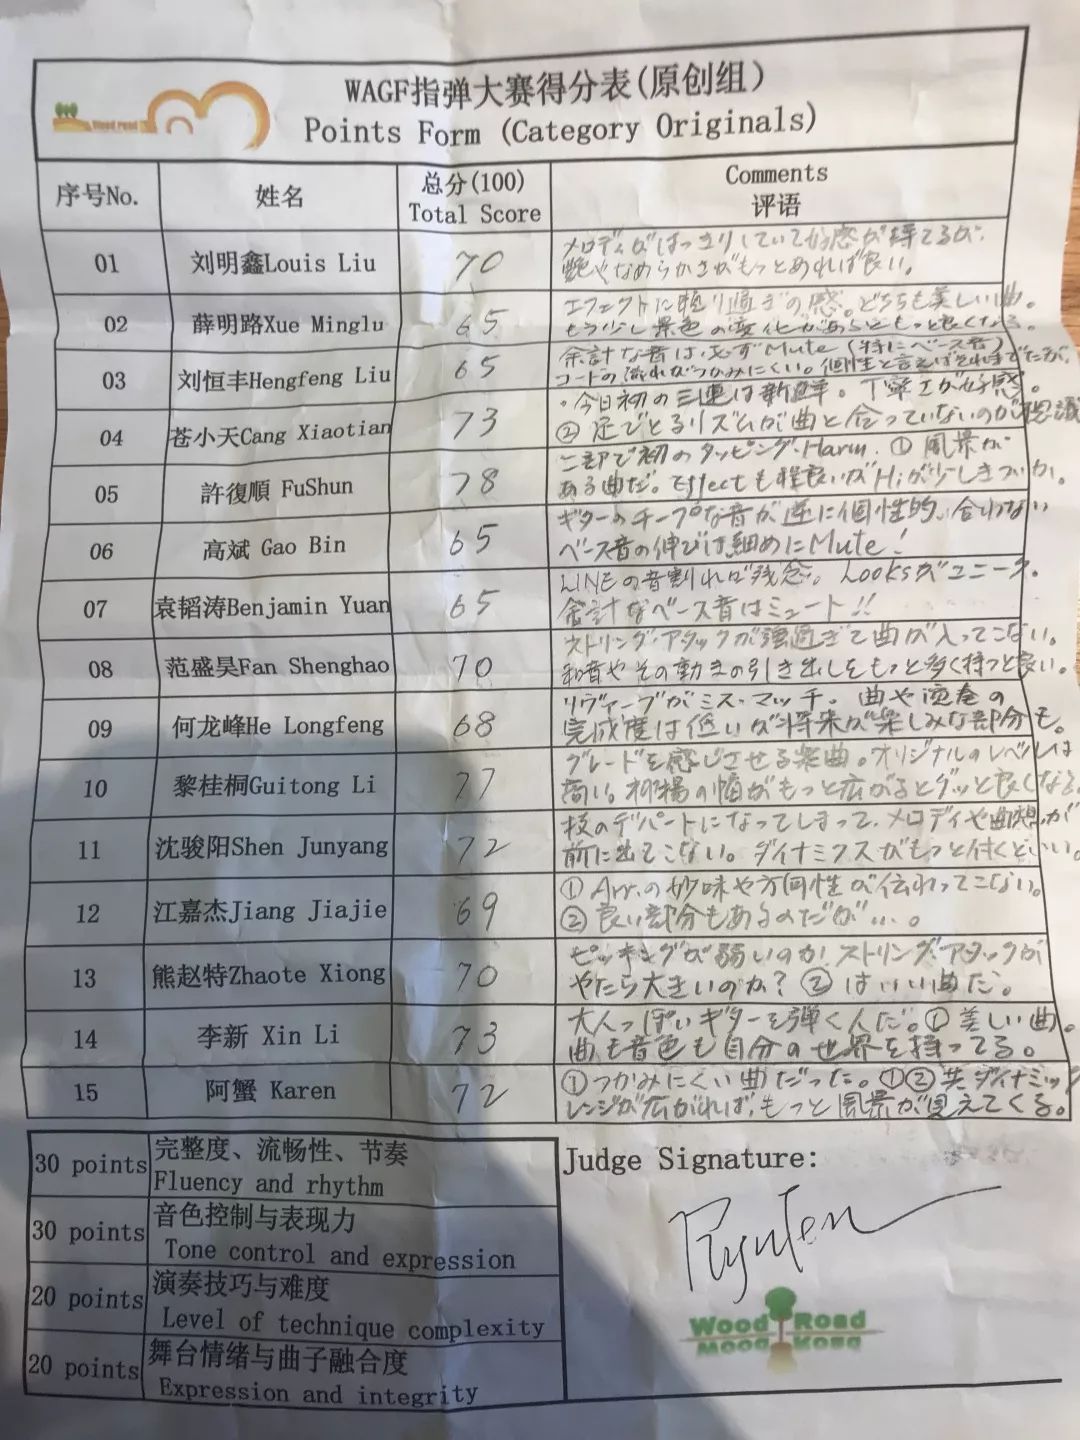 WAGF指弹大赛得分表(原创组)
Points Form (Category Originals)
Wood road
序号No.
姓名
总分(100)
Total Score
Comments
评语
01
刘明鑫Louis Liu
70
メロディがはっきりしていて好感が持てるが、
艶やなめらかさがもっとあれば良い。
02
薛明路Xue Minglu
65
エフェクトに頼り過ぎの感。どちらも美しい曲。
もう少し景色の変化があるともっと良くなる。
03
刘恒丰Hengfeng Liu
65
余計な音は必ずMute(特にベース音)
コードの流れがつかみにくい。個性と言えばそれまでだが。
04
苍小天Cang Xiaotian
73
・今日初の三連は新鮮。丁寧さが好感。
② 足でとるリズムが曲と合っていないのが不思議
05
許復順 FuShun
78
二部で初のタッピング・Harm. ① 風景が
ある曲だ。Effectも程良いがHiが少しきついか。
06
高斌 Gao Bin
65
ギターのチープな音が逆に個性的。合わない
ベース音の伸びは細めにMute!
07
袁韬涛Benjamin Yuan
65
LINEの音割れが残念。Looksがユニーク。
余計なベース音はミュート!!
08
范盛昊Fan Shenghao
70
ストリング・アタックが強過ぎて曲が入ってこない。
和音やその動きの引き出しをもっと多く持つと良い。
09
何龙峰He Longfeng
68
リヴァーブがミス・マッチ。曲や演奏の
完成度は低いが将来が楽しみな部分も。
10
黎桂桐Guitong Li
77
グレードを感じさせる楽曲。オリジナルのレベルは
高い。抑揚の幅がもっと広がるとグッと良くなる。
11
沈骏阳Shen Junyang
72
技のデパートになってしまって、メロディや曲想が
前に出てこない。ダイナミクスがもっと付くといい。
12
江嘉杰Jiang Jiajie
69
① Arr.の妙味や方向性が伝わってこない。
② 良い部分もあるのだが…。
13
熊赵特Zhaote Xiong
70
ピッキングが弱いのか、ストリング・アタックが
やたら大きいのか? ② はいい曲だ。
14
李新 Xin Li
73
大人っぽいギターを弾く人だ。① 美しい曲。
曲も音色も自分の世界を持ってる。
15
阿蟹 Karen
72
① つかみにくい曲だった。①②共ダイナミック
レンジが広がれば、もっと風景が見えてくる。
30 points
完整度、流畅性、节奏
Fluency and rhythm
30 points
音色控制与表现力
Tone control and expression
20 points
演奏技巧与难度
Level of technique complexity
20 points
舞台情绪与曲子融合度
Expression and integrity
Judge Signature:
Wood Road